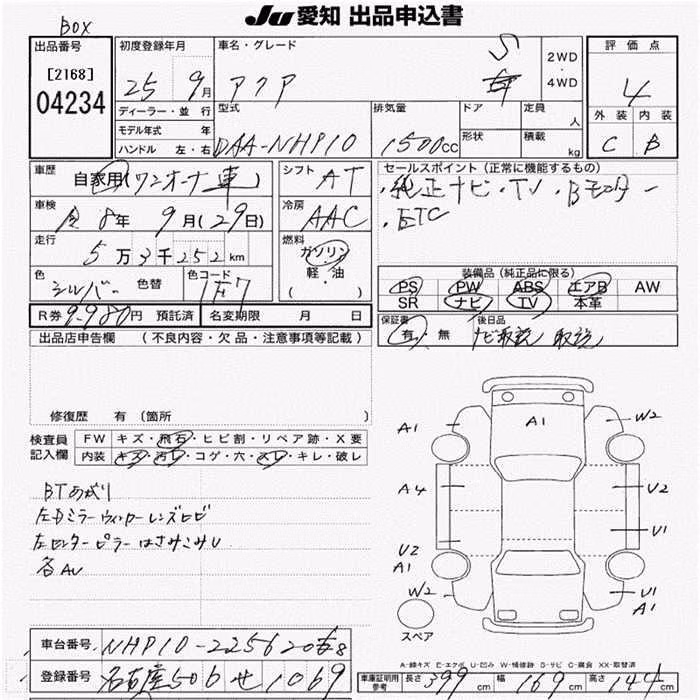 JU 愛知 出品申込書
BOX
出品番号
[2168]
04234
初度登録年月
25 9月
車名・グレード
アクア
S
2WD
・
4WD
評価点
4
外装 内装
C B
ディーラー・並行
モデル年式 年
ハンドル 左・右
型式
DAA-NHP10
排気量
1500cc
ドア
形状
定員 人
積載 kg
車歴
自家用(ワンオーナー車)
車検
8年 9月(29日)
走行
5万3千252km
色
シルバー
色替
色コード
1F7
シフト
AT
冷房
AAC
燃料
ガソリン
軽・油
( )
セールスポイント(正常に機能するもの)
・純正ナビ・TV・Bモニター
・ETC
装備品(純正品に限る)
PS PW ABS エアB AW
SR ナビ TV 本革
R券 9,980円 預託済 名変期限 月 日
保証書
有・無
後日品
ナビ取説 取説
出品店申告欄 (不良内容・欠品・注意事項等記載)
修復歴 有(箇所 )
検査員
記入欄
FW キズ・飛石・ヒビ割・リペア跡・X要
内装 キズ・汚レ・コゲ・穴・スレ・キレ・破レ
BTあがり
左Dミラーウィンカーレンズヒビ
左センターピラーはさみこみU
各AU
A1
A1
W2
A4
U2
U1
U2
A1
W2
U1
A1
スペア
A-線キズ E-エクボ U-凹み W-補修跡 B-サビ C-腐食 XX-取替済
車台番号
NHP10-2256206
登録番号
名古屋506せ1069
車庫証明用
参考
長さ 399cm 幅 169cm 高さ 144cm